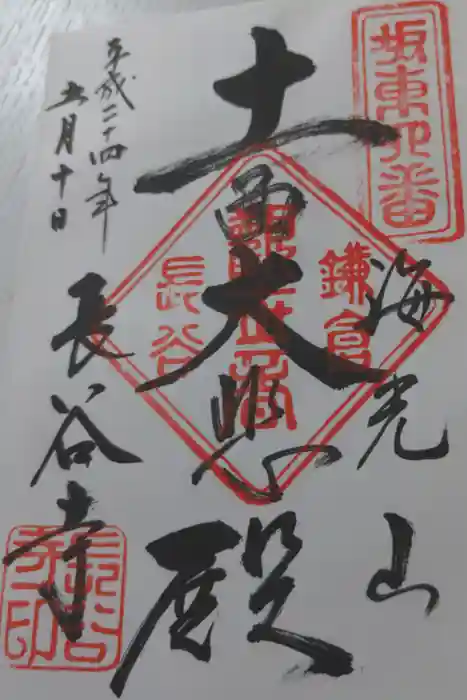 坂東四番
海光山
十一面大悲殿
鎌倉
観世音
長谷
平成二十四年
五月十日
長谷寺
長谷寺印